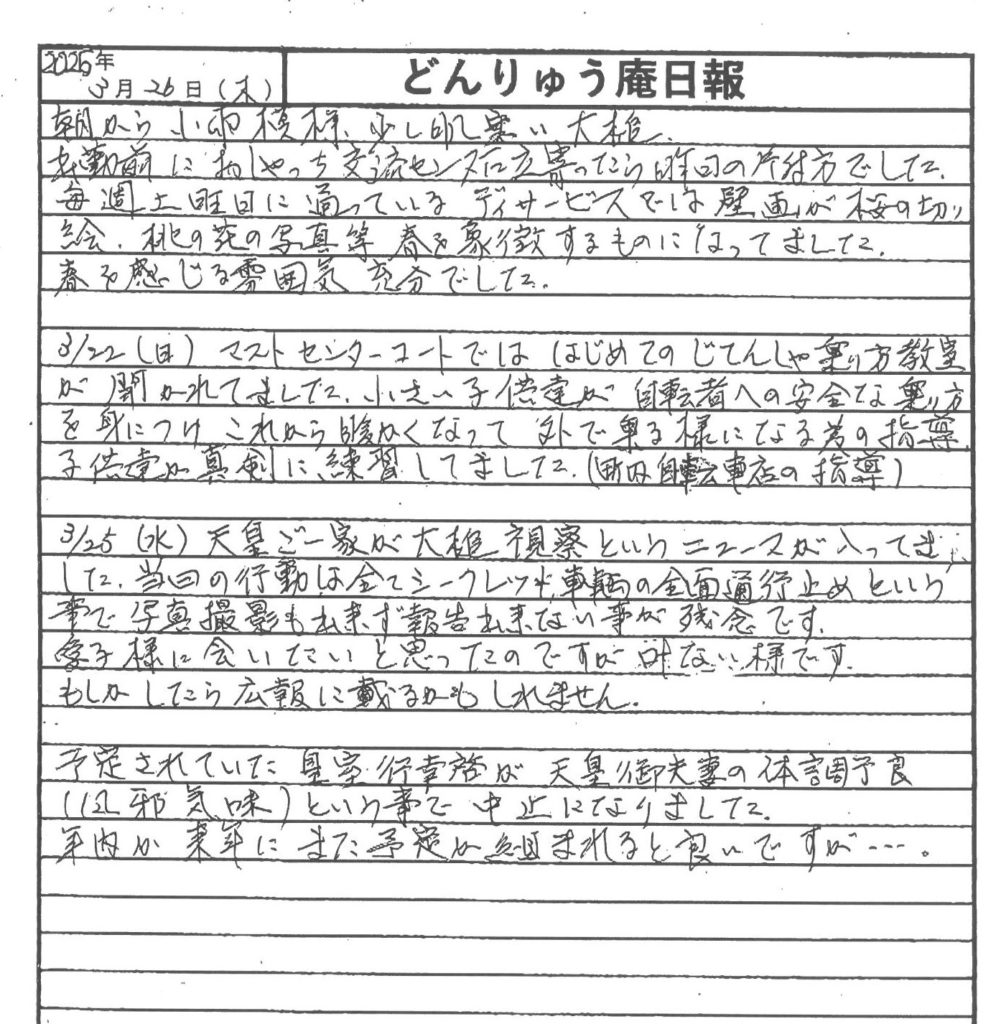 2026年
3月26日(木)
どんりゅう庵日報
朝から小雨模様、少し肌寒い大槌、
出勤前におしゃっち交流センターに立寄ったら昨日の片付方でした。
毎週土曜日に通っているディサービスでは壁画が桜の切り
絵、桃の花の写真等春を象徴するものになってました。
春を感じる雰囲気充分でした。
3/22(日) マストセンターコートでははじめてのじてんしゃ乗り方教室
が開かれてました。小さい子供達が自転者への安全な乗り方
を身につけこれから暖かくなって外で乗る様になる為の指導、
子供達が真剣に練習してました。(町内自転車店の指導)
3/25(水) 天皇ご一家が大槌視察というニュースが入ってきま
した。当日の行動は全てシークレット、車輌の全面通行止めという
事で写真撮影も出来ず報告出来ない事が残念です。
愛子様に会いたいと思ったのですが叶ない様です。
もしかしたら広報に載るかもしれません。
予定されていた皇室行幸啓が天皇御夫妻の体調予良
(風邪気味)という事で中止になりました。
年内か来年にまた予定が組まれると良いですが…。